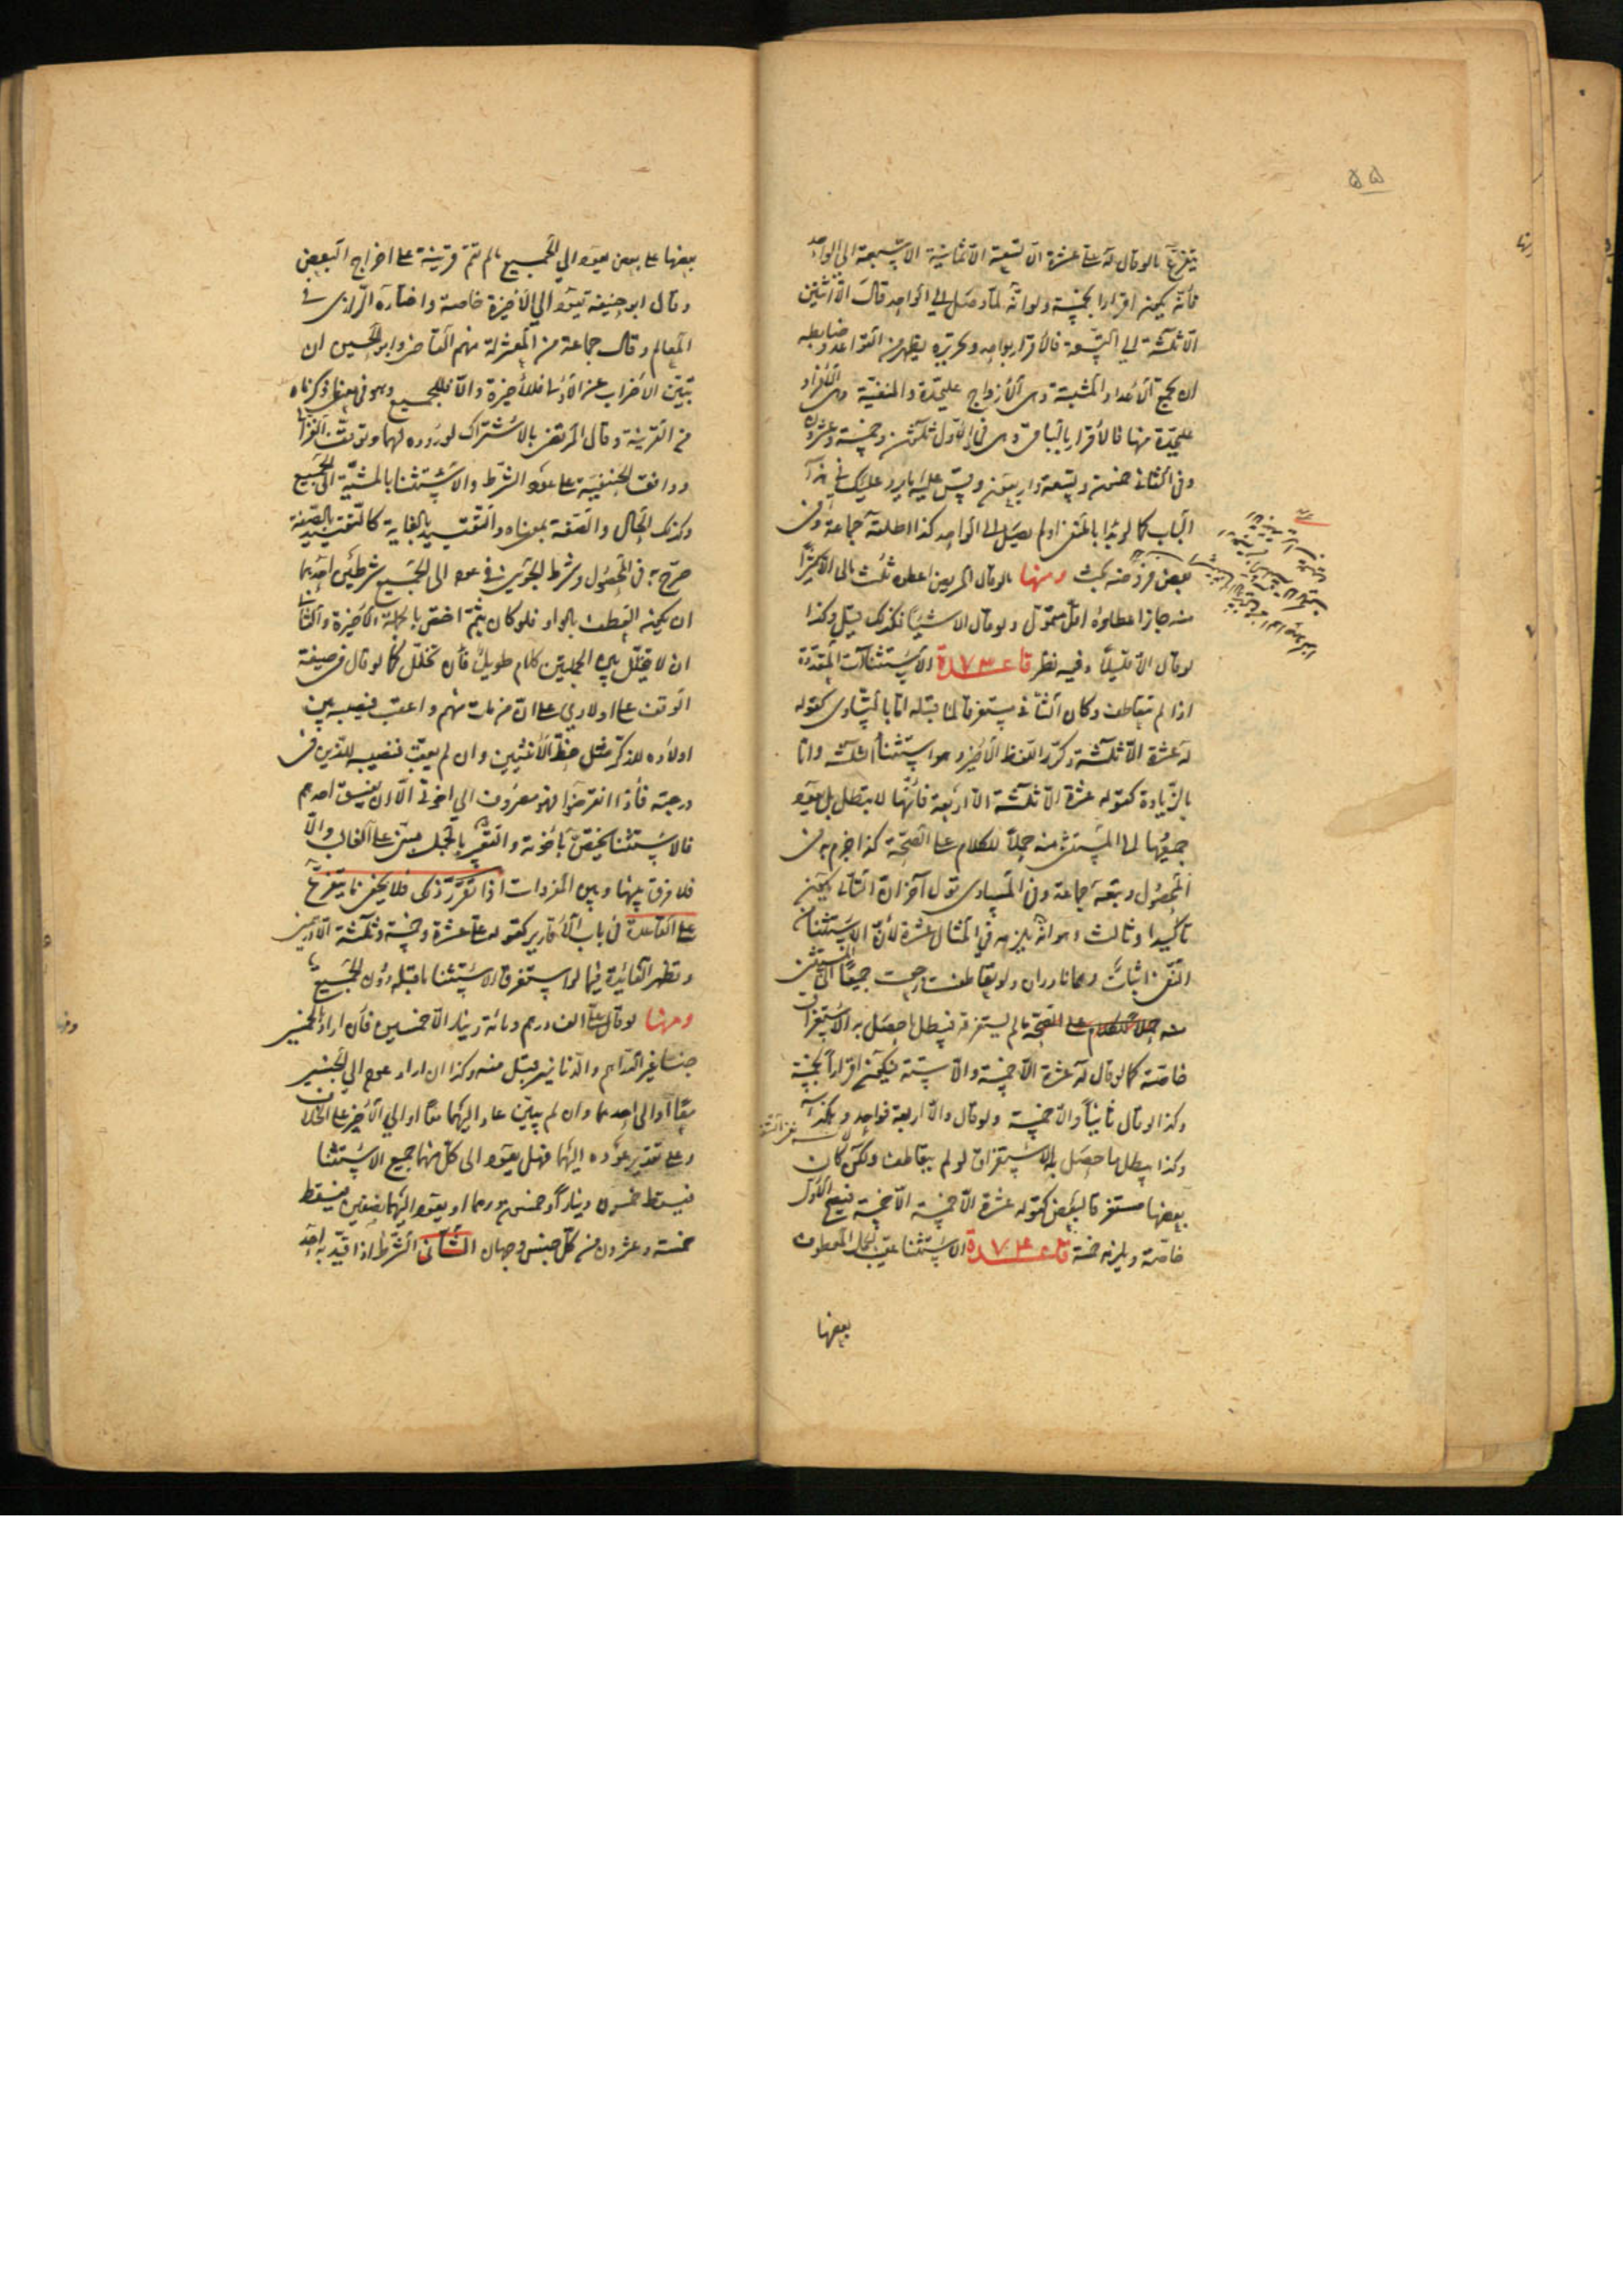 ۵۵
يتفرع ما لو قال له علي عشرة الا تسعة الا ثمانية الا سبعة الى الواحد
فانه يكون اقرارا بخمسة ولو انه لما وصل الى الواحد قال الا اثنين
الا ثلثة الى التسعة فالاقرار بواحد وتحريره يظهر من القواعد وضابطه
ان يجمع الاعداد المثبتة وهي الازواج عليحدة والمنفية وهي الافراد
عليحدة منها فالاقرار بالباقي وهي في الاول ثلثون وخمسة وعشرون
وفي الثاني خمسون وتسعة واربعون وقس عليه ما يرد عليك في هذا
الباب كما لو بدا بالمنفي او لم يصل الى الواحد كذا اطلقه جماعة وفي
بعض فروضه بحث ومنها ما لو قال المريض اعطوه ثلث مالي الا كثيرا
منه جاز اعطاؤه اقل متمول ولو قال الا شيئا فكذلك قيل وكذا
لو قال الا قليلا وفيه نظر قاعدة ٧٣ الاستثناآت المتعددة
اذا لم تتعاطف وكان الثاني مستغرقا لما قبله اما بالتساوي كقوله
له عشرة الا ثلثة وكرر اللفظ الاخير وهو استثنا الثلثة واما
بالزيادة كقوله عشرة الا ثلثة الا اربعة فانها لا تبطل بل يعود
جميعها الى المستثنى منه حملا للكلام على الصحة كذا جزم به في
المحصول وتبعه جماعة وفي المساوي قول آخر ان الثاني يكون
تاكيدا وثالث وهو انه يلزمه في المثال عشرة لان الاستثنا من
النفي اثبات وهما نادران ولو تعاطفت رجعت جميعا الى المستثنى
منه حملا للكلام على الصحة ما لم يستغرقه فيبطل ما حصل به الاستغراق
خاصة كما لو قال له عشرة الا خمسة والا ستة فيكون اقرارا بخمسة
وكذا لو قال ثانيا والا خمسة ولو قال والا اربعة فواحد وهكذا
وكذا يبطل ما حصل به الاستغراق لو لم يتعاطف ولكن كان
بعضها مستغرقا لبعض كقوله عشرة الا خمسة الا خمسة فيصح الاول
خاصة ويلزمه خمسة قاعدة ٧٤ الاستثنا عقيب الجمل المعطوف
بعضها
بعضها على بعض يعود الى الجميع ما لم تقم قرينة على اخراج البعض
وقال ابو حنيفة يعود الى الاخيرة خاصة واختاره الرازي في
المعالم وقال جماعة من المعتزلة منهم القاضي وابو الحسين ان
تبين الاضراب عن الاولى فللاخيرة والا فللجميع وهو في معنى ما ذكرناه
من القرينة وقال المرتضى بالاشتراك لوروده لهما وتوقف الغزالي
ووافقت الحنفية على عود الشرط والاستثنا بالمشية الى الجميع
وكذلك الحال والصفة بمعناه والتقييد بالغاية كالتقييد بالصفة
صرح به في المحصول وشرط الجويني في عوده الى الجميع شرطين احدهما
ان يكون العطف بالواو فلو كان بثم اختص بالجملة الاخيرة والثاني
ان لا يتخلل بين الجملتين كلام طويل فان تخلل كما لو قال في صيغة
الوقف على اولادي على ان من مات منهم واعقب فنصيبه بين
اولاده للذكر مثل حظ الانثيين وان لم يعقب فنصيبه للذين في
درجته فاذا انقرضوا فهو مصروف الى اخوتي الا ان يفسق احدهم
فالاستثنا يختص باخوته والتعبير بالجمل مبني على الغالب والا
فلا فرق بينها وبين المفردات اذا تقرر ذلك فلا يخفى ما يتفرع
على القاعدة في باب الاقارير كقوله علي عشرة وخمسة وثلثة الا درهمين
وتظهر الفائدة فيما لو استغرق الاستثنا ما قبله دون الجميع
ومنها لو قال علي الف درهم ومائة دينار الا خمسين فان اراد بالخمسين
جنسا غير الدراهم والدنانير قبل منه وكذا ان اراد عوده الى الجنسين
معا او الى احدهما وان لم يبين عاد اليهما معا او الى الاخير على الخلاف
وعلى تقدير عوده اليهما فهل يعود الى كل منهما جميع الاستثنا
فيسقط خمسون دينارا وخمسون درهما او يعود اليهما نصفين فيسقط
خمسة وعشرون من كل جنس وجهان الثاني الشرط اذا قيد به احد